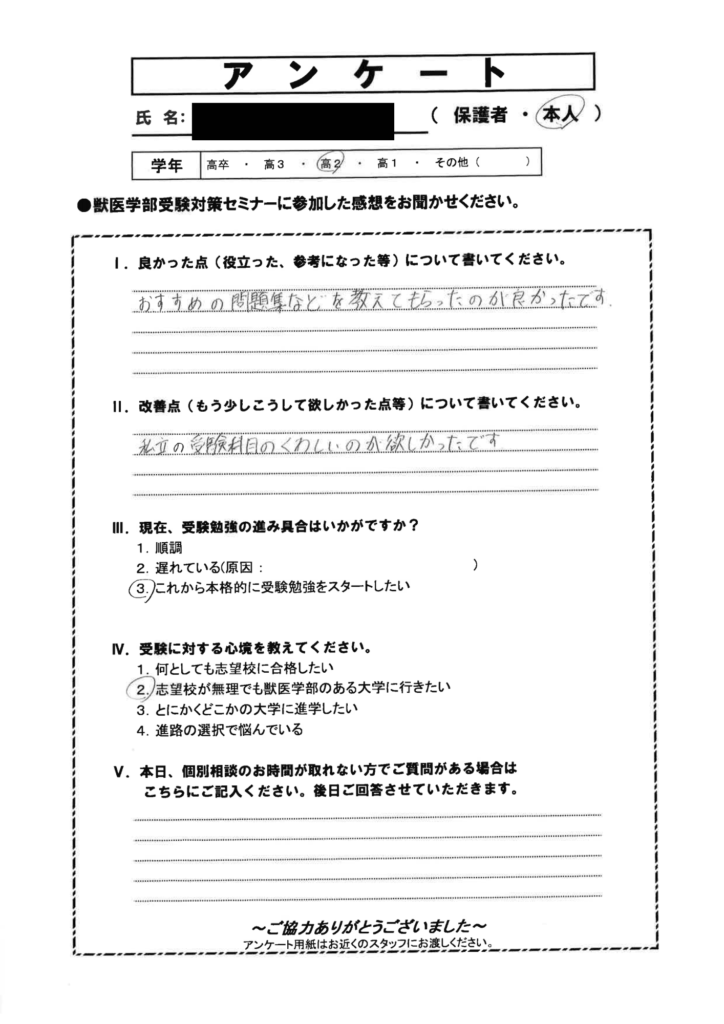 アンケート
氏 名: （ 保護者 ・ 本人 ）
学年 高卒 ・ 高3 ・ 高2 ・ 高1 ・ その他（ ）
●獣医学部受験対策セミナーに参加した感想をお聞かせください。
Ⅰ．良かった点（役立った、参考になった等）について書いてください。
おすすめの問題集などを教えてもらったのが良かったです.
Ⅱ．改善点（もう少しこうして欲しかった点等）について書いてください。
私立の受験科目のくわしいのが欲しかったです
Ⅲ．現在、受験勉強の進み具合はいかがですか？
1．順調
2．遅れている(原因： ）
3．これから本格的に受験勉強をスタートしたい
Ⅳ．受験に対する心境を教えてください。
1．何としても志望校に合格したい
2．志望校が無理でも獣医学部のある大学に行きたい
3．とにかくどこかの大学に進学したい
4．進路の選択で悩んでいる
Ⅴ．本日、個別相談のお時間が取れない方でご質問がある場合は
こちらにご記入ください。後日ご回答させていただきます。
～ご協力ありがとうございました～
アンケート用紙はお近くのスタッフにお渡しください。